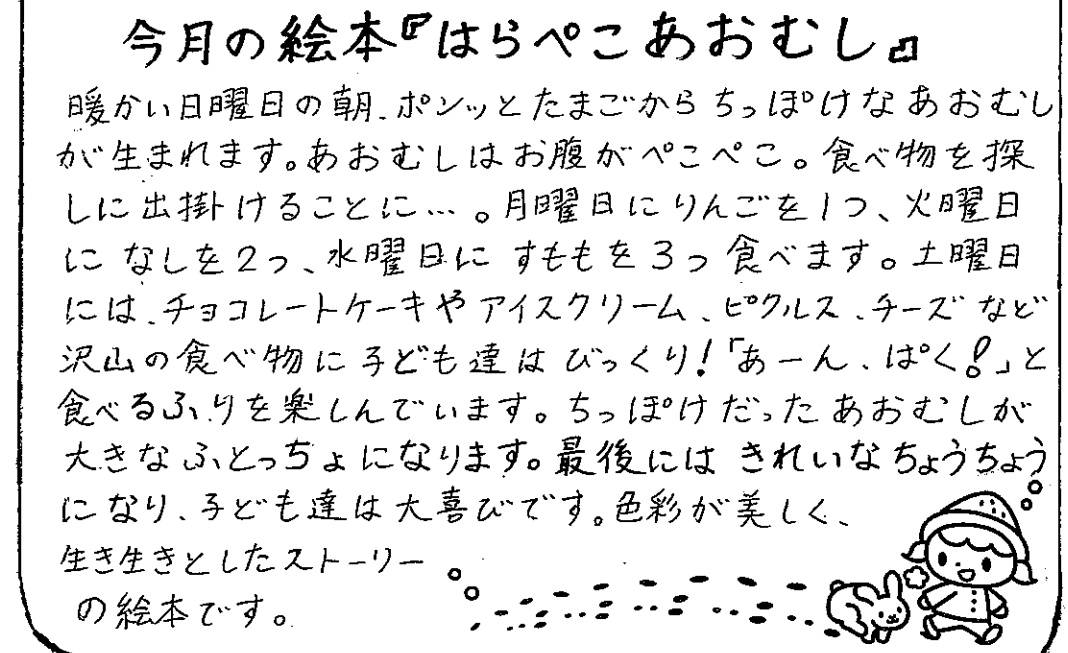 今月の絵本『はらぺこあおむし』
暖かい日曜日の朝、ポンッとたまごからちっぽけなあおむし
が生まれます。あおむしはお腹がぺこぺこ。食べ物を探
しに出掛けることに…。月曜日にりんごを1つ、火曜日
になしを2つ、水曜日にすももを3つ食べます。土曜日
には、チョコレートケーキやアイスクリーム、ピクルス、チーズなど
沢山の食べ物に子ども達はびっくり!「あーん、ぱく!」と
食べるふりを楽しんでいます。ちっぽけだったあおむしが
大きなふとっちょになります。最後にはきれいなちょうちょう
になり、子ども達は大喜びです。色彩が美しく、
生き生きとしたストーリー
の絵本です。